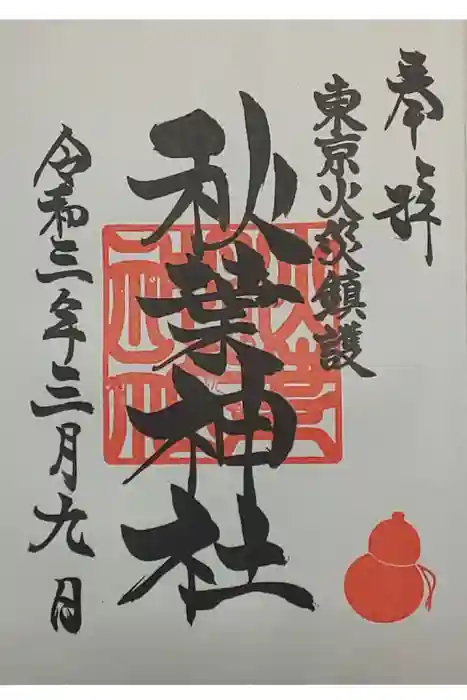 奉拝
東京火災鎮護
秋葉神社
令和三年三月九日